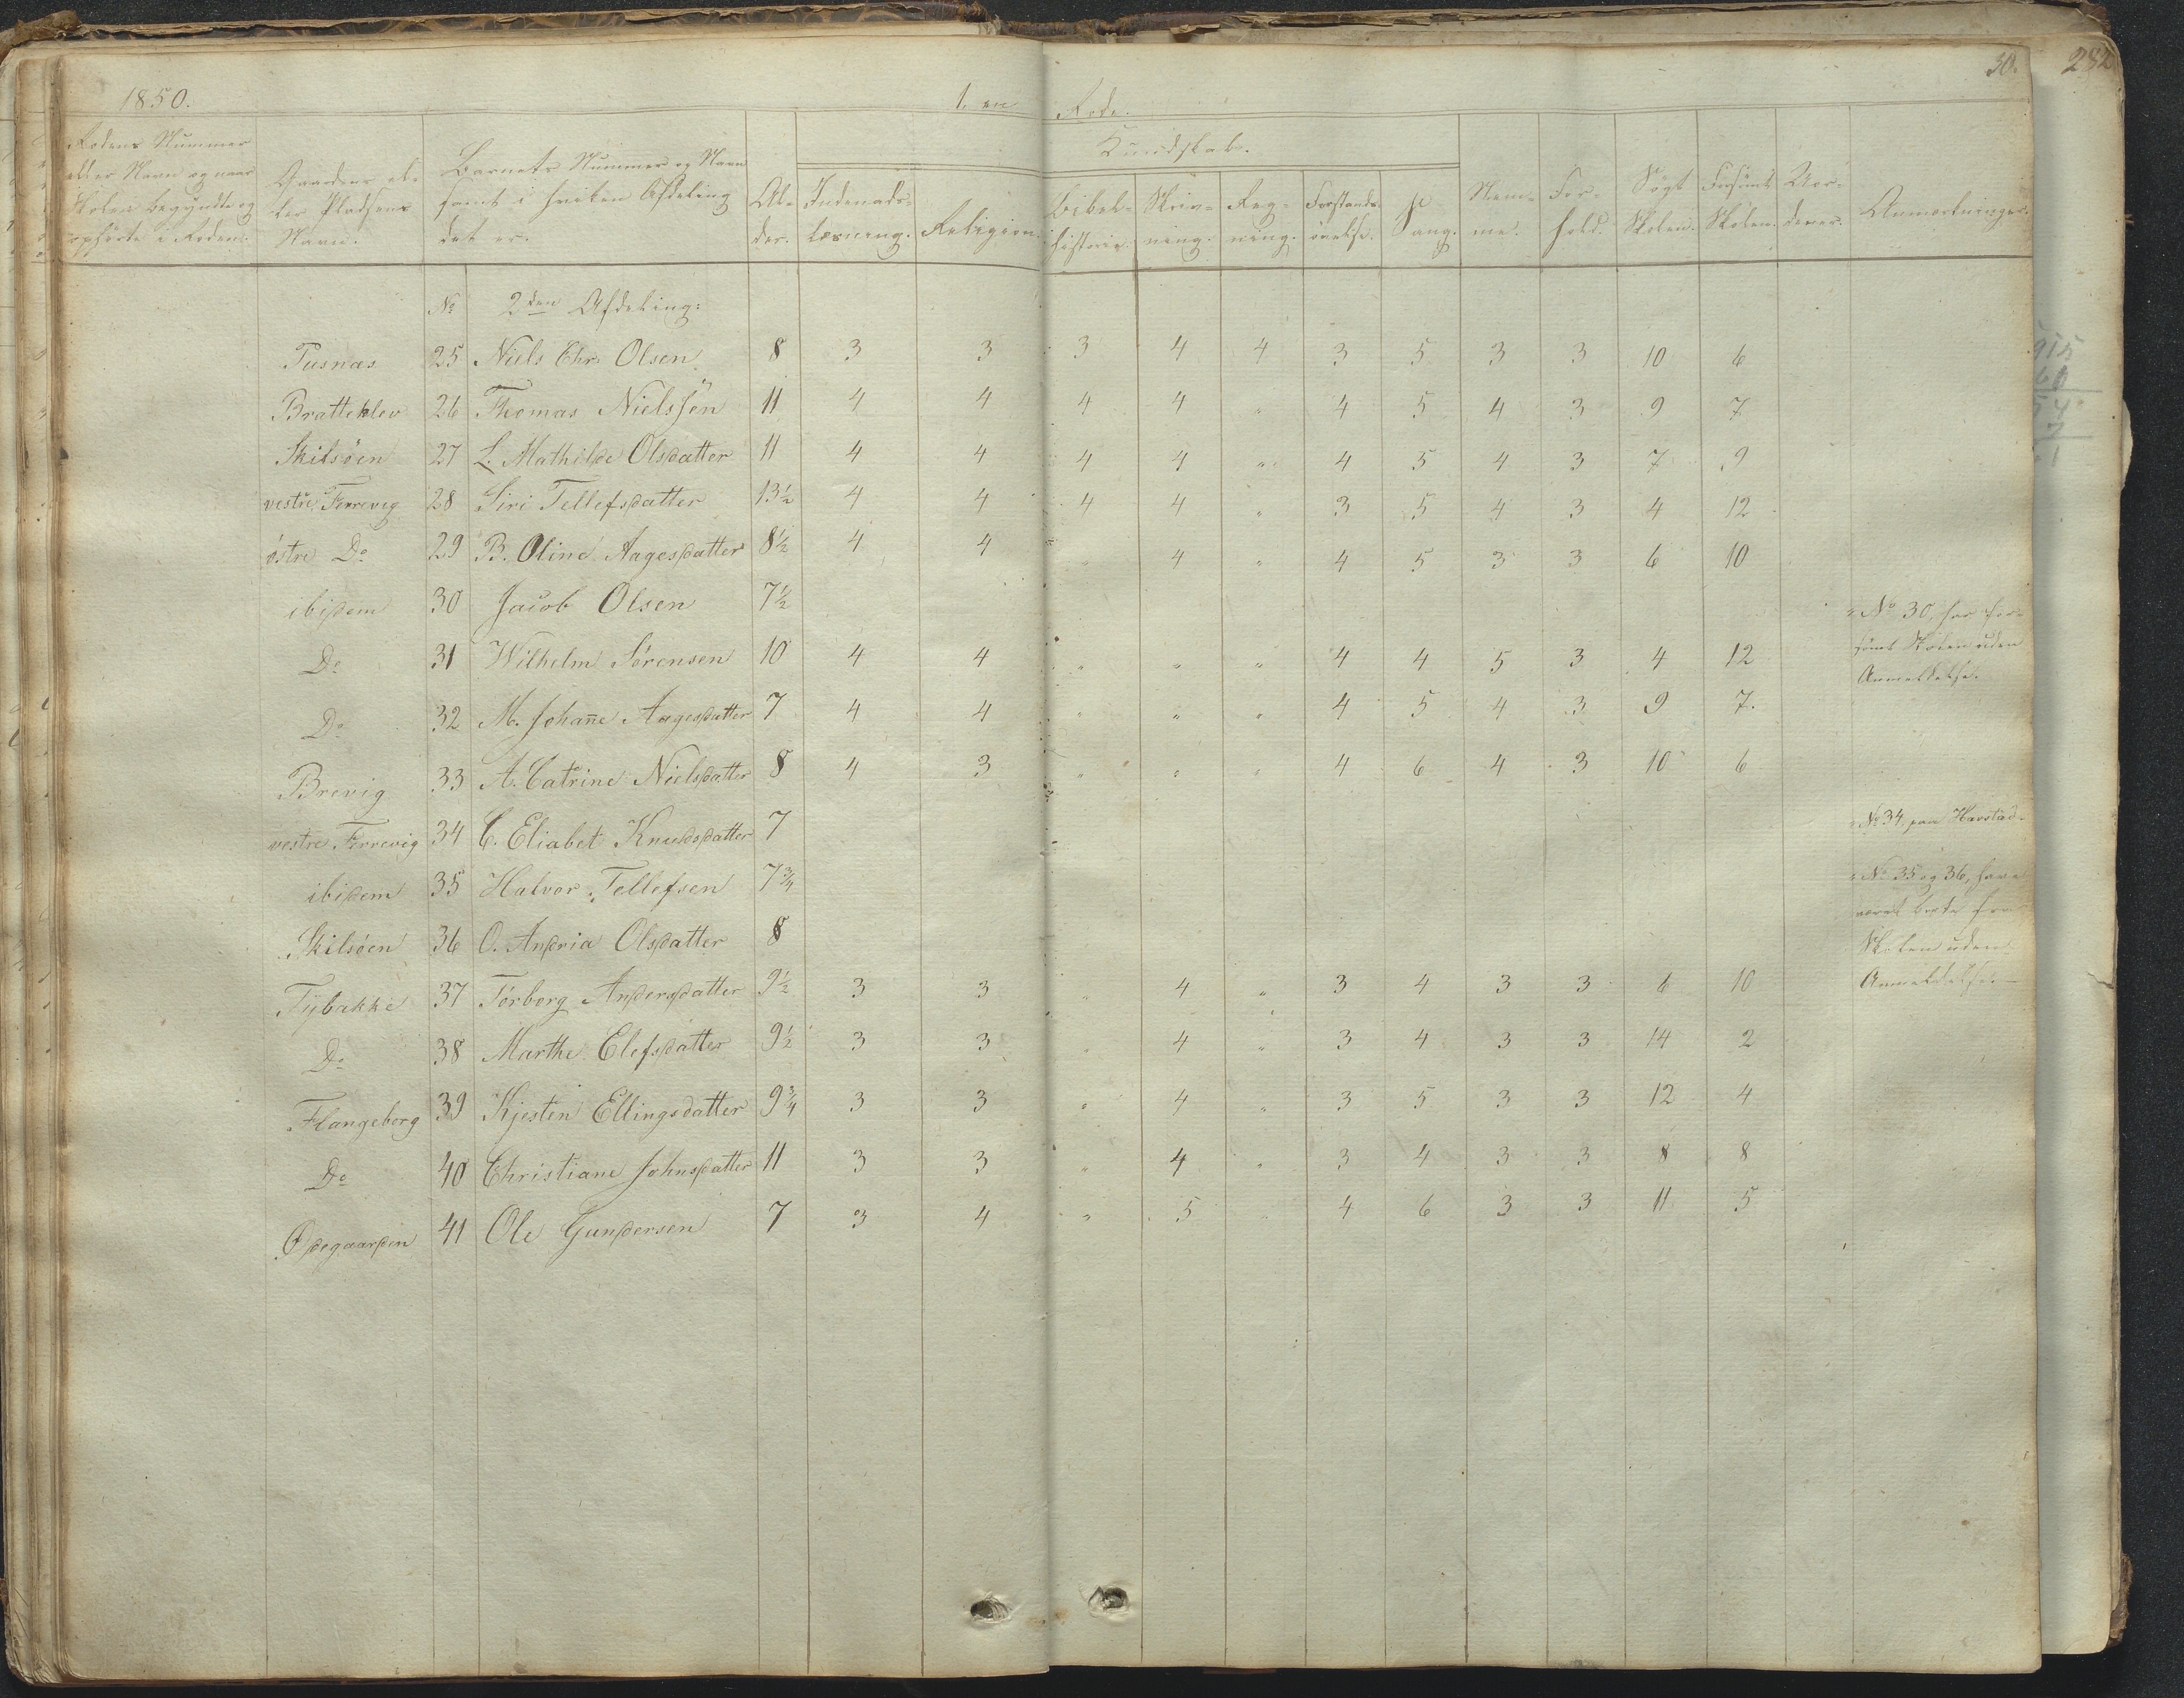 30. 232
1850. 1. en Rode.
Rodens Nummer eller Navn og naar Skolen begyndte og ophörte i Roden. | Gaardens eller Pladsens Navn. | Barnets Nummer og Navn samt i hvilken Afdeling det er. | Alder. | Kundskab. | Indenadslæsning. | Religion. | Bibelhistorie. | Skrivning. | Regning. | Forstandsövelse. | Sang. | Nemme. | Forhold. | Sögt Skolen. | Forsömt Skolen. | | Anmærkninger.
No 2den Afdeling:
Pusnas 25 Niels Chr. Olsen 8 3 3 3 4 4 3 5 3 3 10 6
Bratteklev 26 Thomas Nielssön 11 4 4 4 4 " 4 5 4 3 9 7
Skilsöen 27 L. Mathilde Olsdatter 11 4 4 4 4 " 4 5 4 3 7 9
vestre Færevig 28 Siri Tellefsdatter 13½ 4 4 4 4 " 3 5 4 3 4 12
östre Do 29 B. Oline Aagesdatter 8½ 4 4 " 4 " 4 5 3 3 6 10
ibidem 30 Jacob Olsen 7½ " No 30, har for-
Do 31 Wilhelm Sörensen 10 4 4 " " " 4 4 5 3 4 12 sömt Skolen uden
Anmeldelse.
Do 32 M. Johañe Aagesdatter 7 4 4 " " " 4 5 4 3 9 7.
Brevig 33 A. Catrine Nielsdatter 8 4 3 " " " 4 6 4 3 10 6
vestre Færevig 34 C. Eliabet Knudsdatter 7 " No 34, paa Havstad-
ibidem 35 Halvor Tellefsen 7¾ " No 35 og 36, have
været borte fra
Skilsöen 36 O. Andria Olsdatter 8 Skolen uden
Tybakke 37 Törborg Andersdatter 9½ 3 3 " 4 " 3 4 3 3 6 10 Anmeldelse. —
Do 38 Marthe Elefsdatter 9½ 3 3 " 4 " 3 4 3 3 14 2
Flangeborg 39 Kjesten Ellingsdatter 9¾ 3 3 " 4 " 3 5 3 3 12 4
Do 40 Christiane Johnsdatter 11 3 3 " 4 " 3 4 3 3 8 8
Ödegaarden 41 Ole Gundersen 7 3 4 " 5 " 4 6 3 3 11 5